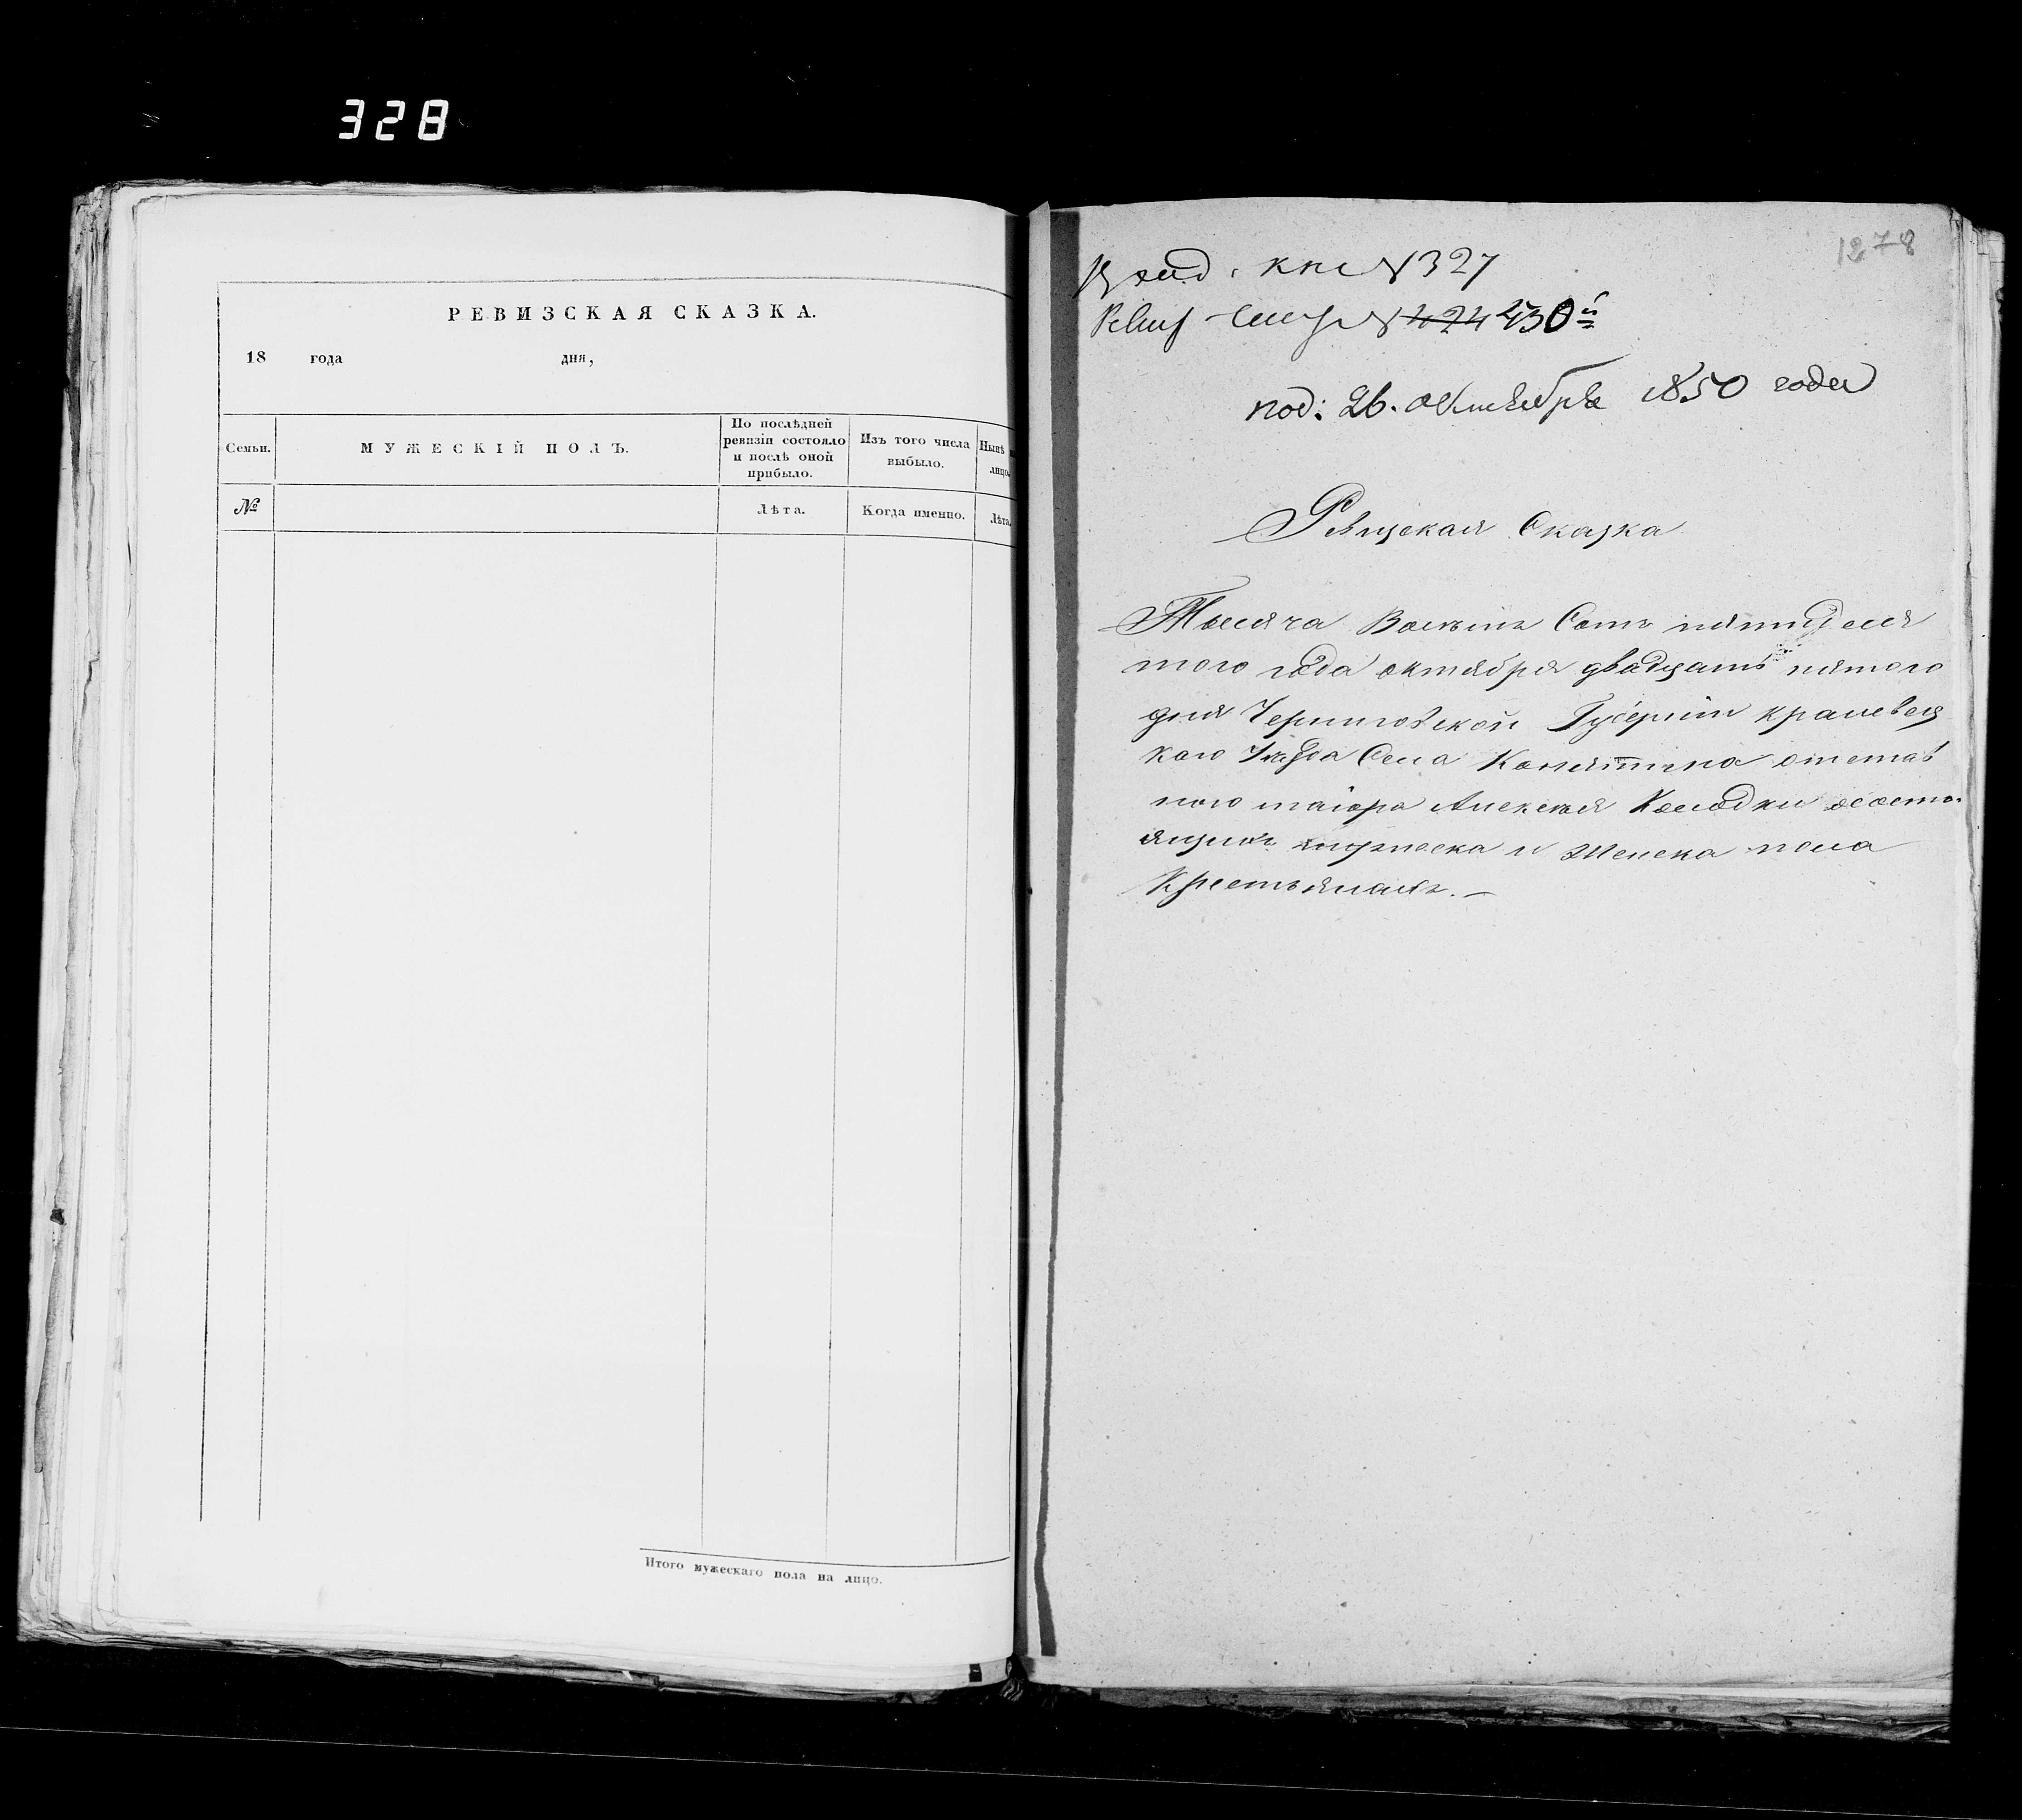 328
РЕВИЗСКАЯ СКАЗКА.
18 года дня,
Семьи.
МУЖЕСКІЙ ПОЛЪ.
По послѣдней
ревизіи состояло
и послѣ оной
прибыло.
Изъ того числа
выбыло.
Нынѣ
лицо.
№
Лѣта.
Когда именно.
Лѣта.
Итого мужескаго пола на лицо.
1278
кни № 327
Ревиз № 424 430й
под: 26. Октября 1850 года
Ревизская Сказка
Тысяча Восемь Сотъ пятидеся
того года октября двадцать пятого
дня Черниговской Губернии кралевец
кого Уезда Села Конятина отстав
ного маіора Алексея Колодки о состо
ящихъ мужеска и Женска пола
Крестьянахъ. —